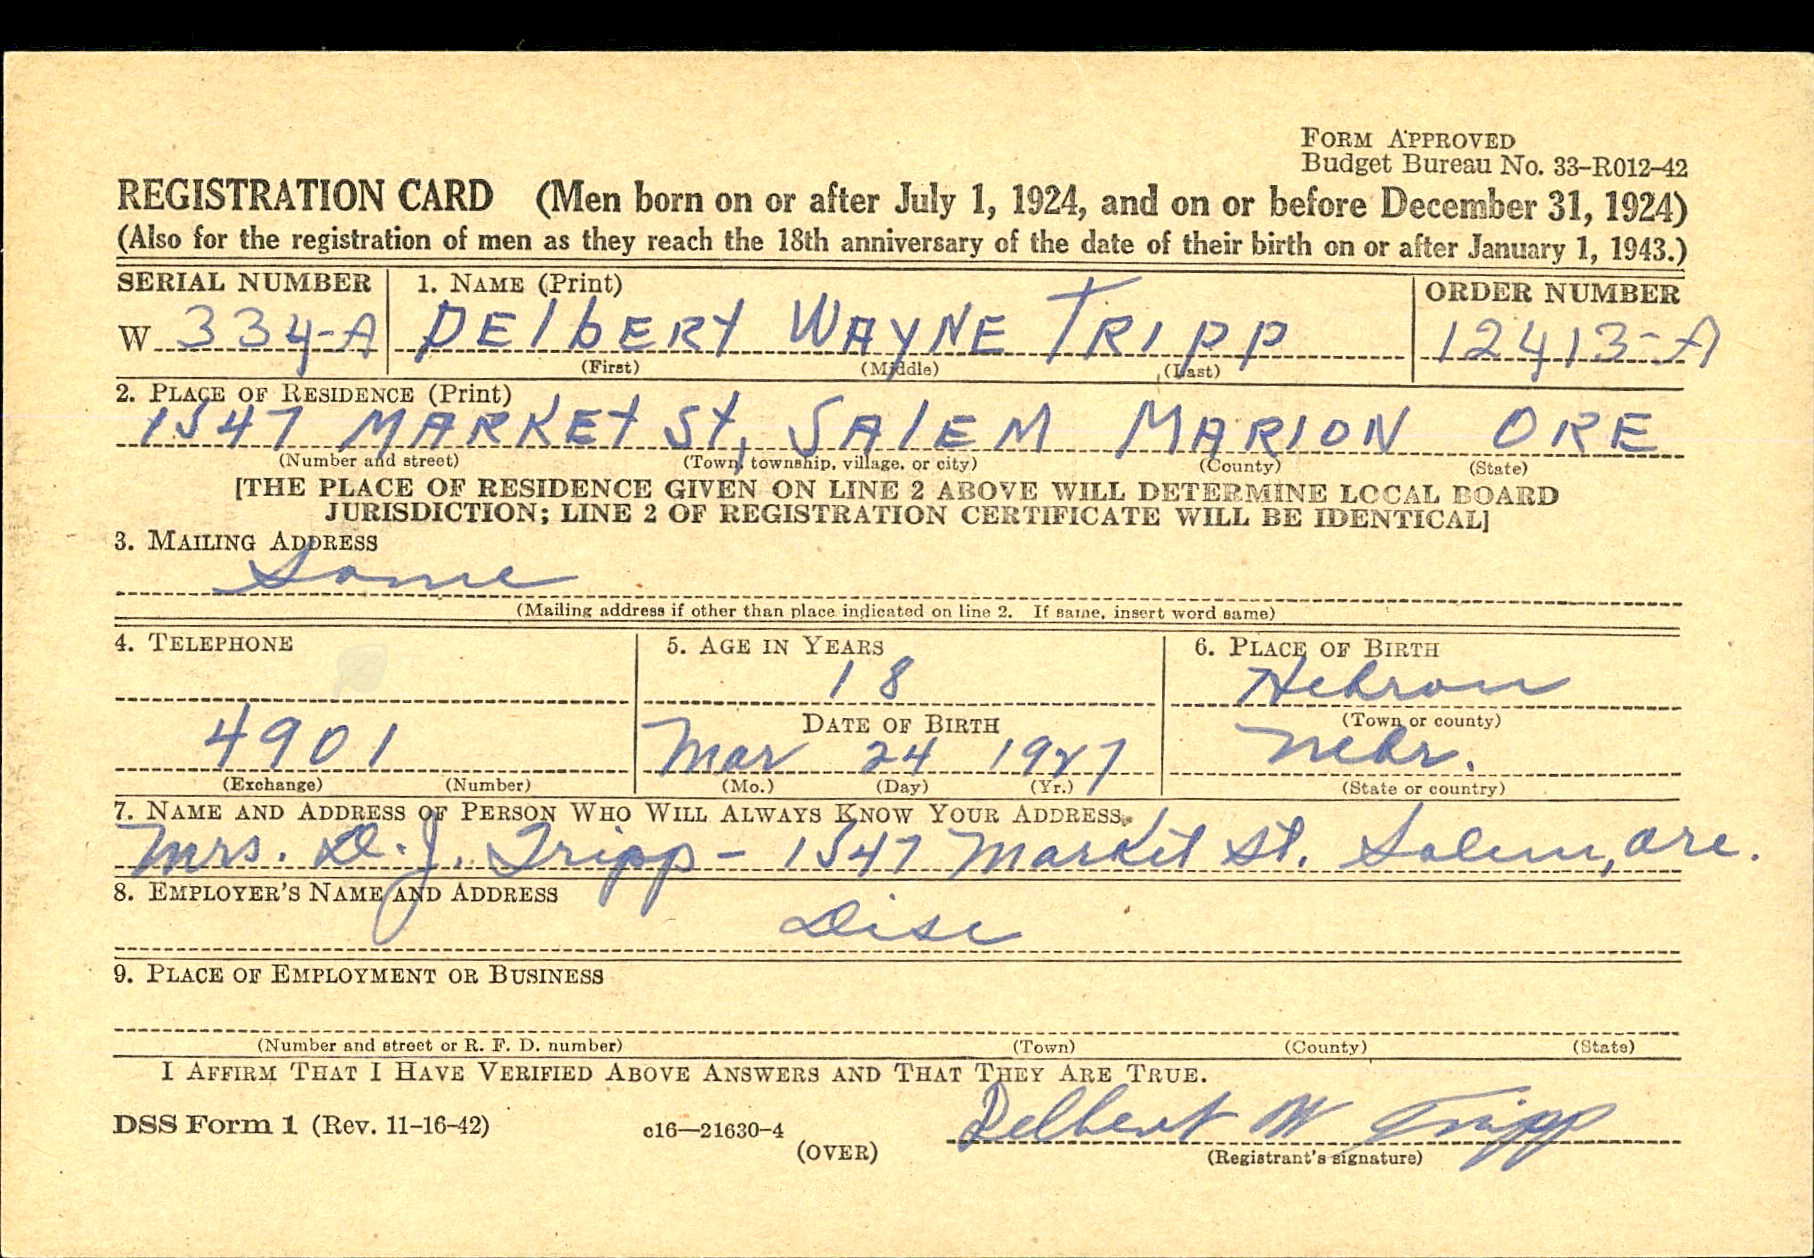 FORM APPROVED
Budget Bureau No. 33–R012–42
REGISTRATION CARD (Men born on or after July 1, 1924, and on or before December 31, 1924)
(Also for the registration of men as they reach the 18th anniversary of the date of their birth on or after January 1, 1943.)
SERIAL NUMBER 1. NAME (Print) ORDER NUMBER
W 334-A DElbERt WAYNE TRIPP 12413-A
(First) (Middle) (Last)
2. PLACE OF RESIDENCE (Print)
1547 MARKEt St, SAlEM MARION ORE
(Number and street) (Town, township, village, or city) (County) (State)
[THE PLACE OF RESIDENCE GIVEN ON LINE 2 ABOVE WILL DETERMINE LOCAL BOARD
JURISDICTION; LINE 2 OF REGISTRATION CERTIFICATE WILL BE IDENTICAL]
3. MAILING ADDRESS
Same
(Mailing address if other than place indicated on line 2. If same, insert word same)
4. TELEPHONE 5. AGE IN YEARS 6. PLACE OF BIRTH
18 Hebron
DATE OF BIRTH (Town or county)
4901 Mar 24 1927 Nebr.
(Exchange) (Number) (Mo.) (Day) (Yr.) (State or country)
7. NAME AND ADDRESS OF PERSON WHO WILL ALWAYS KNOW YOUR ADDRESS.
Mrs. D. J. Tripp - 1547 Market St. Salem, Ore.
8. EMPLOYER'S NAME AND ADDRESS
Disc
9. PLACE OF EMPLOYMENT OR BUSINESS
(Number and street or R. F. D. number) (Town) (County) (State)
I AFFIRM THAT I HAVE VERIFIED ABOVE ANSWERS AND THAT THEY ARE TRUE.
DSS Form 1 (Rev. 11-16-42) c16—21630-4 Delbert W Tripp
(OVER) (Registrant's signature)